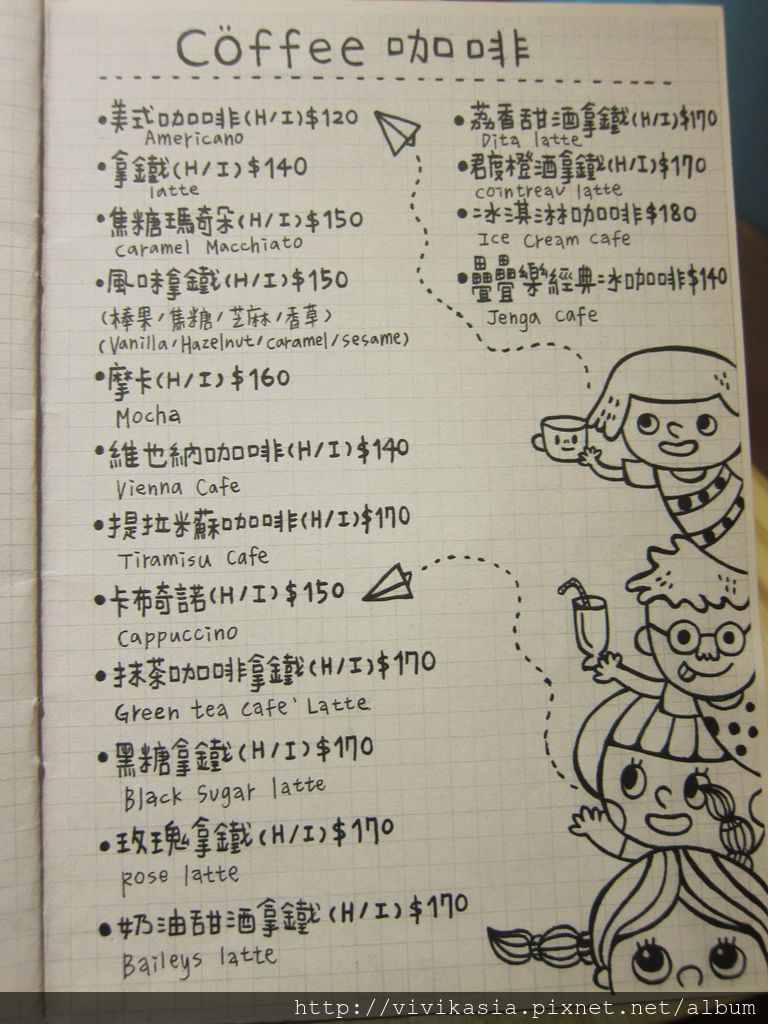 Cöffee 咖啡
•美式咖啡(H/I)$120
Americano
•拿鐵(H/I)$140
latte
•焦糖瑪奇朵(H/I)$150
caramel Macchiato
•風味拿鐵(H/I)$150
(榛果/焦糖/芝麻/香草)
(Vanilla/Hazelnut/caramel/sesame)
•摩卡(H/I)$160
Mocha
•維也納咖啡(H/I)$140
Vienna Cafe
•提拉米蘇咖啡(H/I)$170
Tiramisu Cafe
•卡布奇諾(H/I)$150
Cappuccino
•抹茶咖啡拿鐵(H/I)$170
Green tea cafe' Latte
•黑糖拿鐵(H/I)$170
Black Sugar latte
•玫瑰拿鐵(H/I)$170
rose latte
•奶油甜酒拿鐵(H/I)$170
Baileys latte
•荔香甜酒拿鐵(H/I)$170
Dita latte
•君度橙酒拿鐵(H/I)$170
cointreau latte
•冰淇淋咖啡$180
Ice Cream cafe
•疊疊樂經典冰咖啡$140
Jenga cafe
http://vivikasia.pixnet.net/album